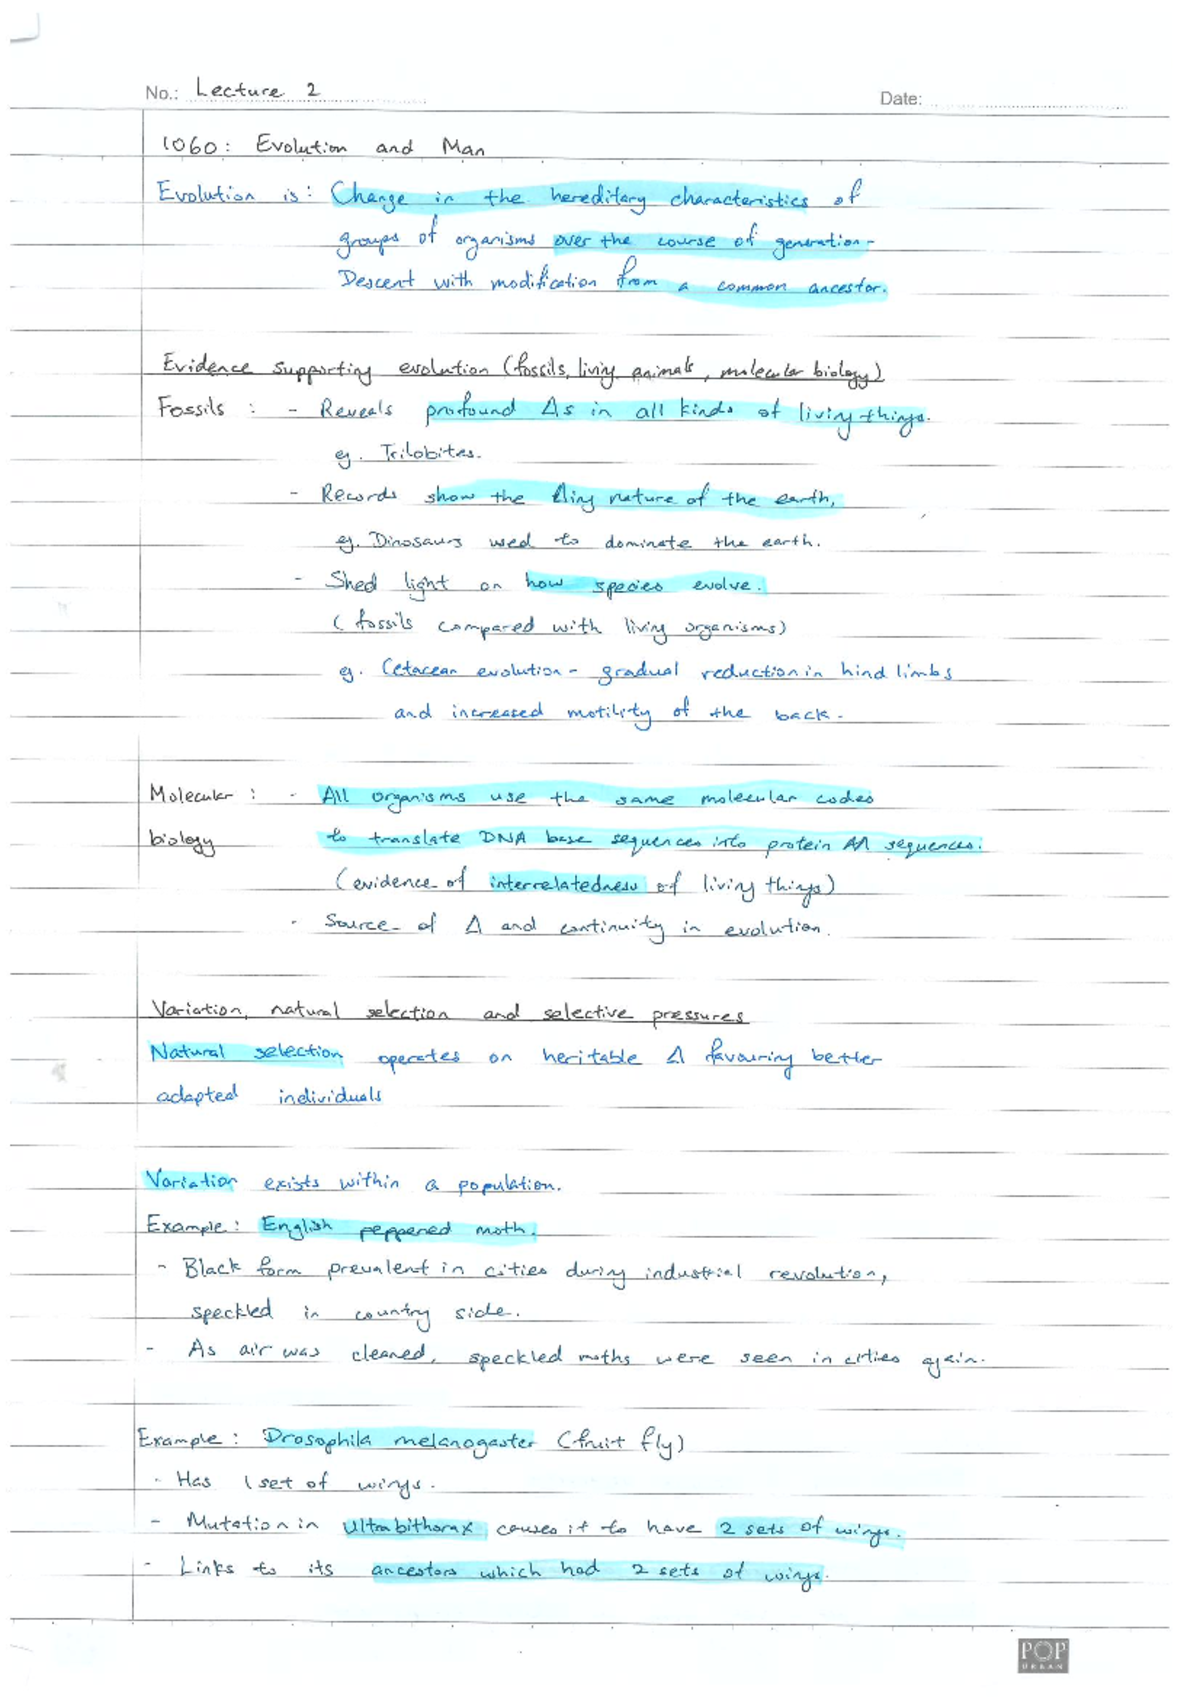 No.: Lecture 2
Date:
1060: Evolution and Man
Evolution is: Change in the hereditary characteristics of
groups of organisms over the course of generation-
Descent with modification from a common ancestor.
Evidence supporting evolution (fossils, living animals, molecular biology)
Fossils : - Reveals profound Δs in all kinds of living things.
eg. Trilobites.
- Records show the Δing nature of the earth,
eg. Dinosaurs used to dominate the earth.
- Shed light on how species evolve.
(fossils compared with living organisms)
eg. Cetacean evolution - gradual reduction in hind limbs
and increased motility of the back.
Molecular : - All organisms use the same molecular codes
biology to translate DNA base sequences into protein AA sequences.
(evidence of interrelatedness of living things)
- Source of Δ and continuity in evolution.
Variation, natural selection and selective pressures
Natural selection operates on heritable Δ favouring better
adapted individuals
Variation exists within a population.
Example: English peppered moth.
- Black form prevalent in cities during industrial revolution,
speckled in country side.
- As air was cleaned, speckled moths were seen in cities again.
Example: Drosophila melanogaster (fruit fly)
- Has 1 set of wings.
- Mutation in Ultrabithorax causes it to have 2 sets of wings.
- Links to its ancestors which had 2 sets of wings.
POP
URBAN